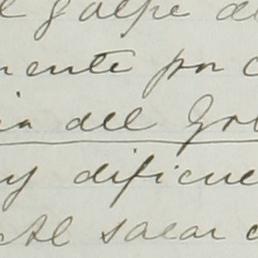 l golpe de
mente por c
ia del Gol
y dificul
Al sacar c